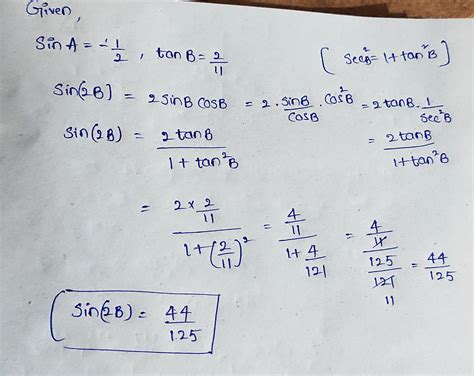 Given,
Sin A = -1/2 , tan B = 2/11 [ Sec²B = 1 + tan²B ]
Sin(2B) = 2 sinB cosB = 2 · sinB/cosB · cos²B = 2 tanB · 1/sec²B
Sin(2B) = 2 tanB / 1 + tan²B = 2 tanB / 1 + tan²B
= 2 × 2/11 / 1 + (2/11)² = 4/11 / 1 + 4/121 = 4/11 / 125/121 11 = 44/125
Sin(2B) = 44/125